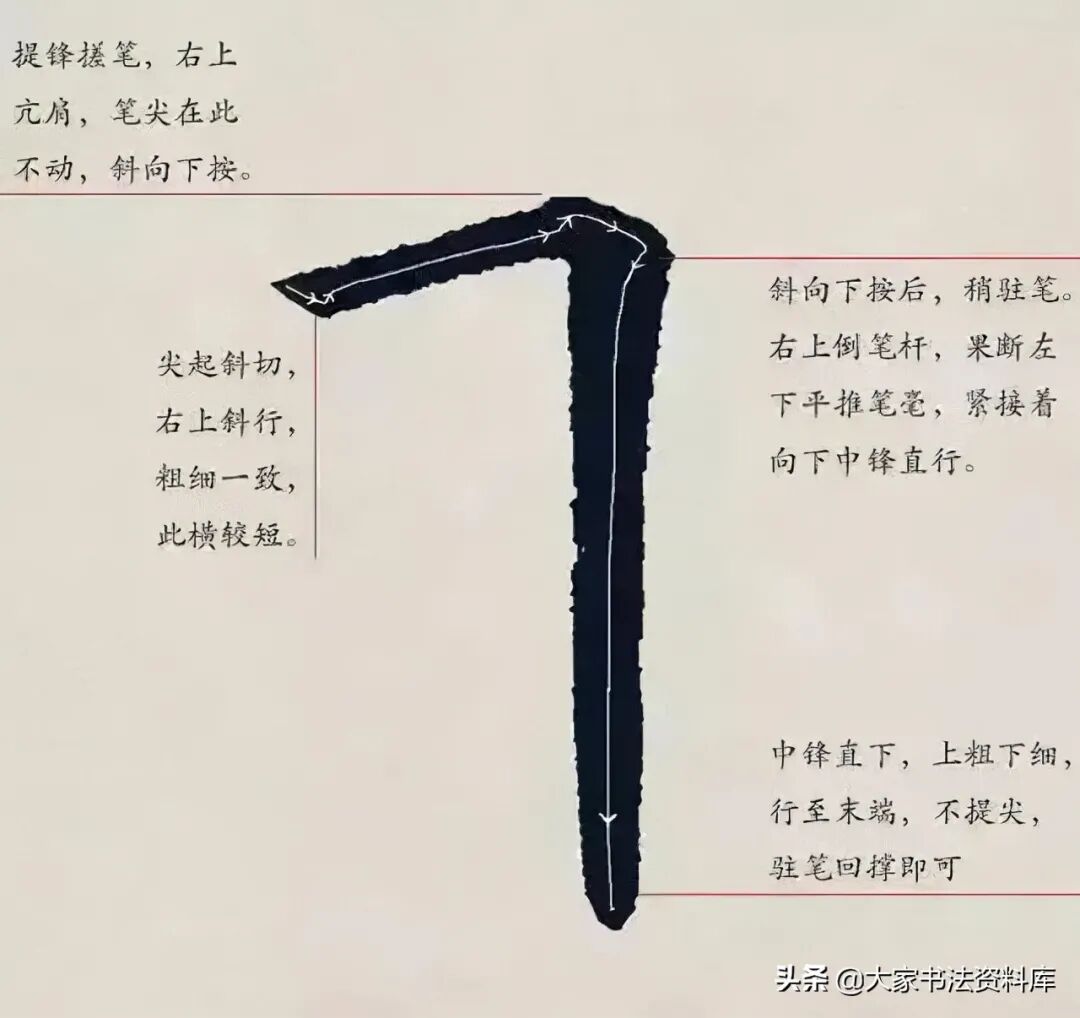 提锋搓笔，右上
亢肩，笔尖在此
不动，斜向下按。
斜向下按后，稍驻笔。
右上倒笔杆，果断左
下平推笔毫，紧接着
向下中锋直行。
尖起斜切，
右上斜行，
粗细一致，
此横较短。
中锋直下，上粗下细，
行至末端，不提尖，
驻笔回撑即可
头条 @大家书法资料库